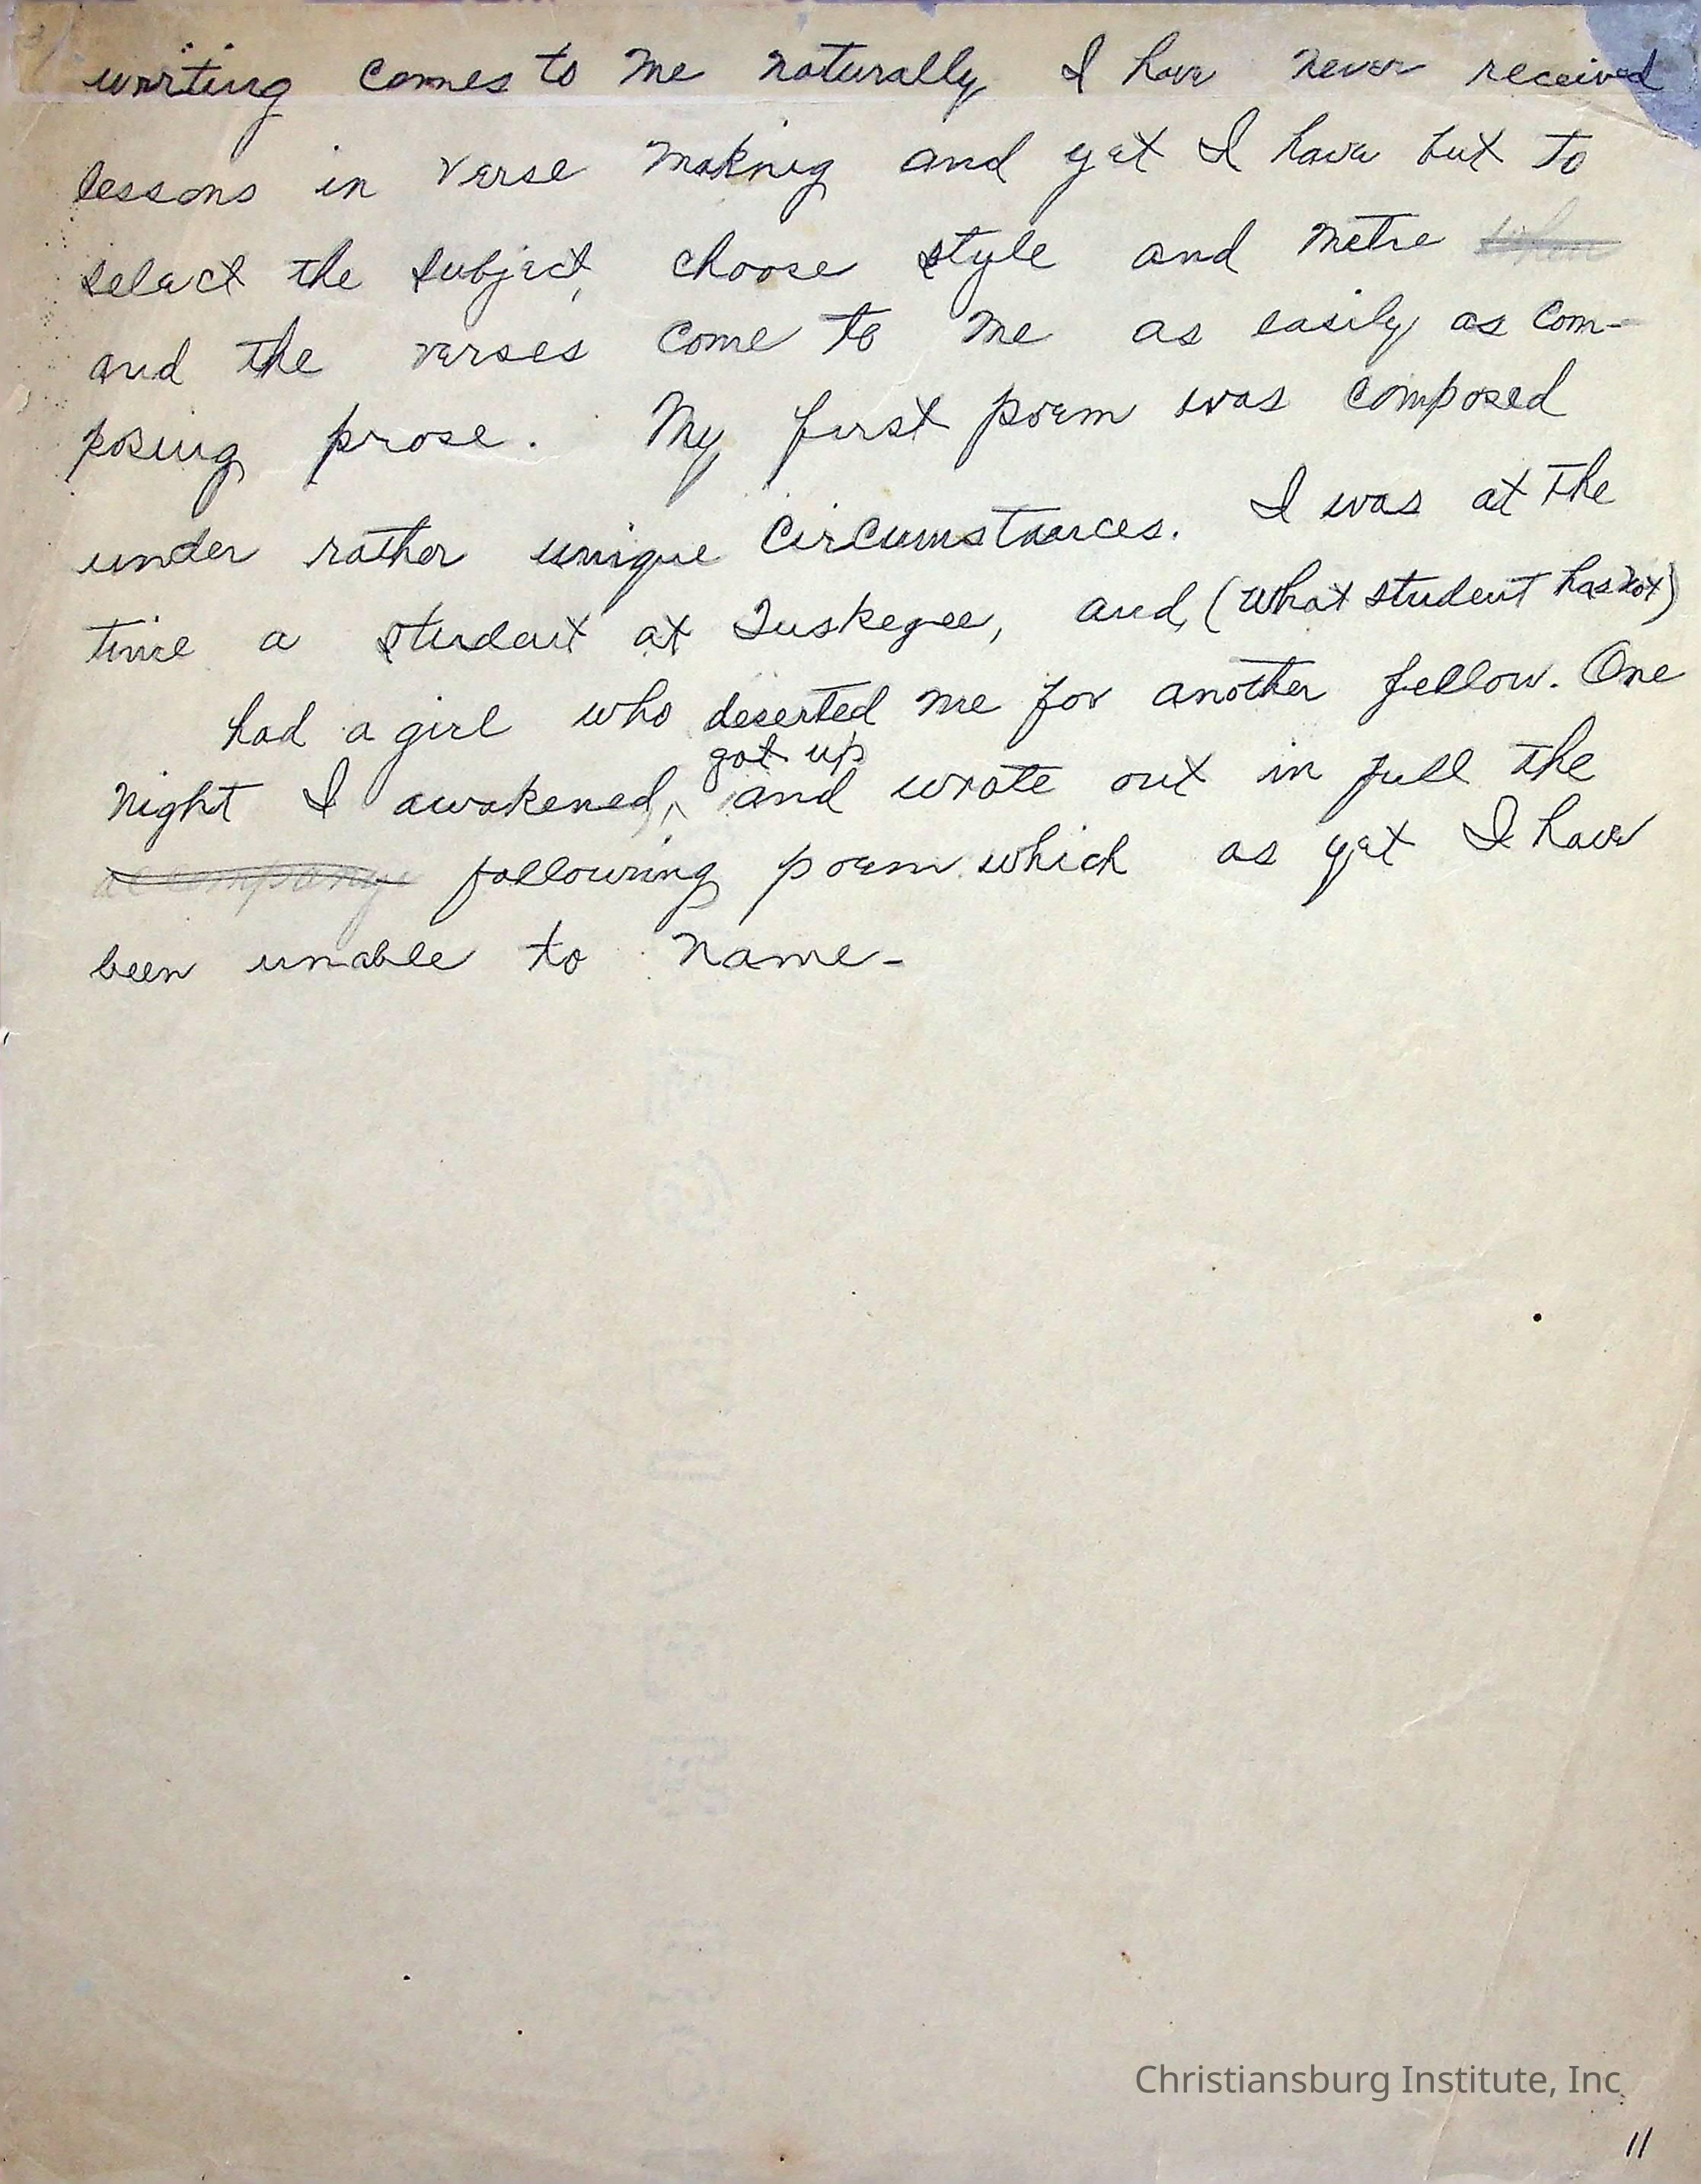 writing comes to me naturally I have never received
lessons in verse making and yet I have but to
select the subject, choose style and metre when
and the verses come to me as easily as com-
posing prose. My first poem was composed
under rather unique circumstances. I was at the
time a student at Tuskegee, and, (what student has not)
had a girl who deserted me for another fellow. One
got up
night I awakened, ^ and wrote out in full the
accompanying following poem which as yet I have
been unable to name-
Christiansburg Institute, Inc
11